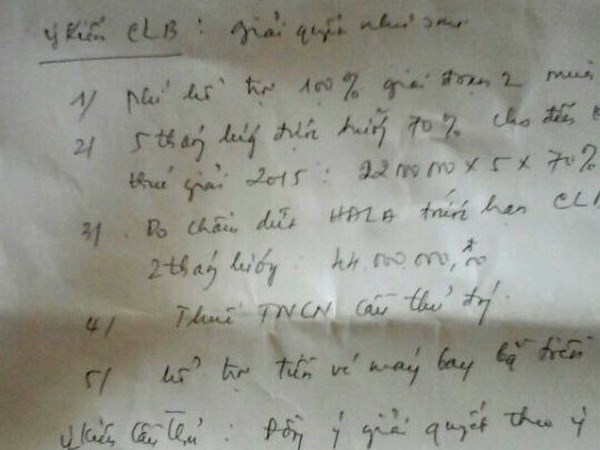 Ý kiến CLB : giải quyết như sau
1/ Phí hỗ trợ 100% giai đoạn 2 mùa
2/ 5 tháng lương được hưởng 70% cho đến
thúc giải 2015 : 22 000 000 x 5 x 70%
3/ . Do chấm dứt HĐLĐ trước hạn CL
2 tháng lương 44.000.000,đ00
4/ Thuế TNCN cầu thủ
5/ hỗ trợ tiền vé máy bay
Ý kiến Cầu Thủ : Đồng ý giải quyết theo ý